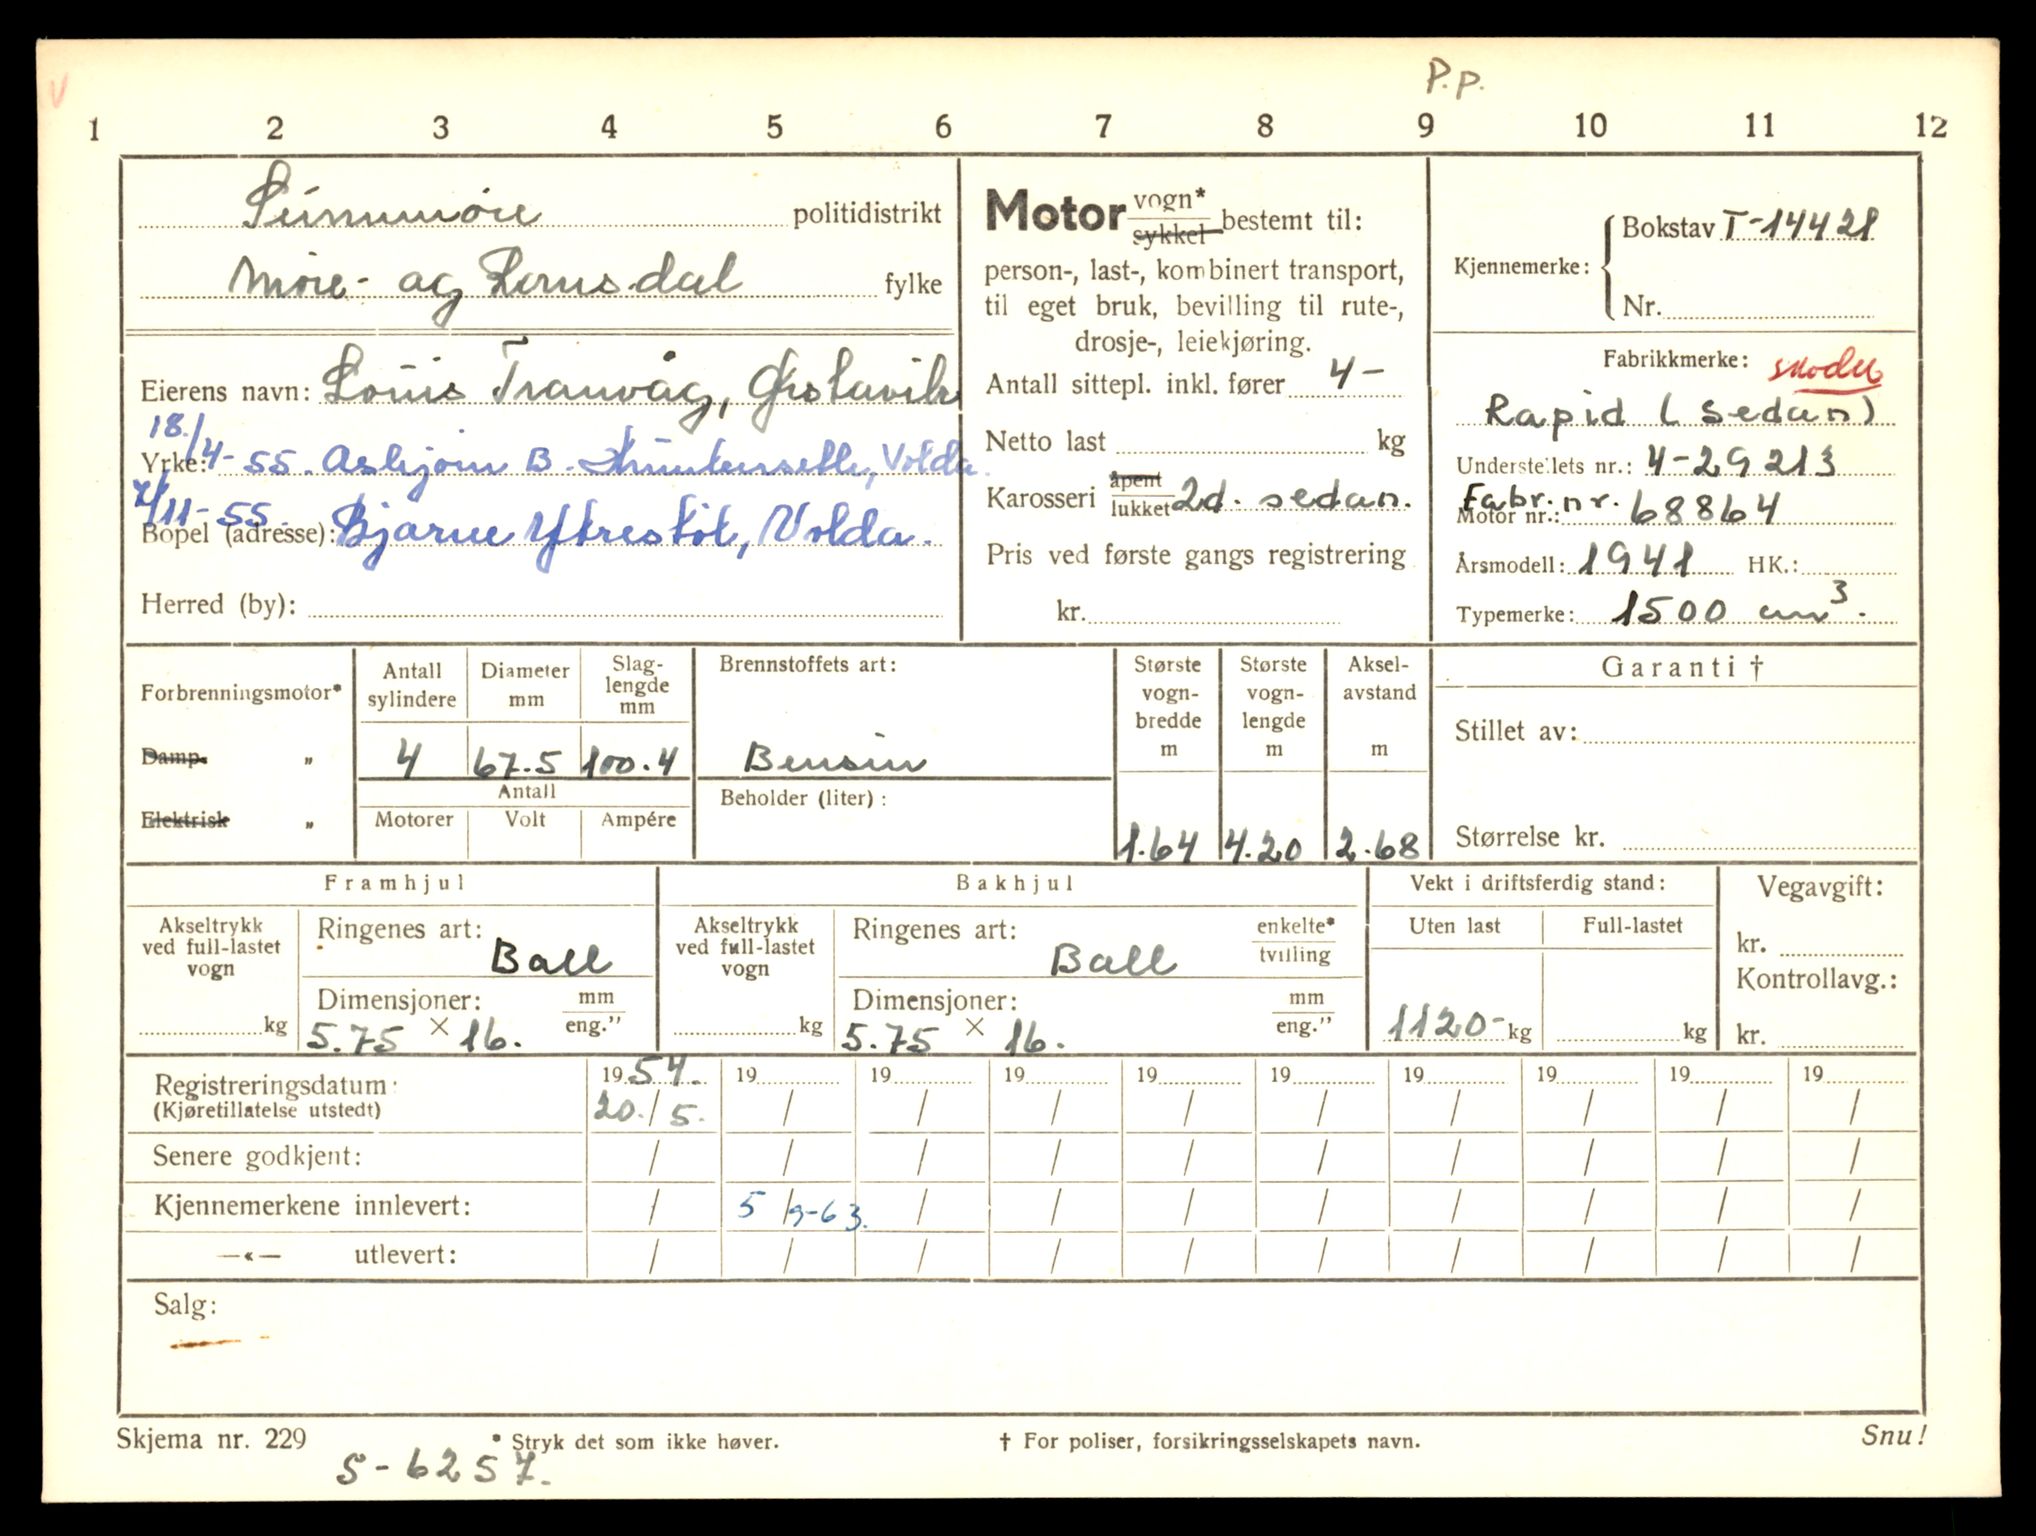 P.p.
1 2 3 4 5 6 7 8 9 10 11 12
Sunnmøre politidistrikt
Møre- og Romsdal fylke
Eierens navn: Louis Tranvåg, Ørstavik
18./4-55. Asbjørn B. Volda.
Yrke:
7/11-55. Bjarne Ytrestøl, Volda.
Bopel (adresse):
Herred (by):
Motor vogn* sykkel bestemt til:
person-, last-, kombinert transport,
til eget bruk, bevilling til rute-,
drosje-, leiekjøring.
Antall sittepl. inkl. fører 4-
Netto last kg
Karosseri åpent lukket 2d. sedan.
Pris ved første gangs registrering
kr.
Kjennemerke: Bokstav T-14428
Nr.
Fabrikkmerke: Skoda
Rapid (sedan)
Understellets nr.: 4-29213
Fabr. nr. 68864
Motor nr.:
Årsmodell: 1941 HK.:
Typemerke: 1500 cm³.
Forbrenningsmotor*
Damp- „
Elektrisk „
Antall sylindere
4
Diameter mm
67.5
Slaglengde mm
100.4
Antall
Motorer Volt Ampére
Brennstoffets art:
Bensin
Beholder (liter):
Største vognbredde m
1.64
Største vognlengde m
4.20
Akselavstand m
2.68
Garanti †
Stillet av:
Størrelse kr.
Framhjul
Akseltrykk ved full-lastet vogn
kg
Ringenes art:
Ball
Dimensjoner: mm eng."
5.75 × 16.
Bakhjul
Akseltrykk ved full-lastet vogn
kg
Ringenes art: enkelte* tvilling
Ball
Dimensjoner: mm eng."
5.75 × 16.
Vekt i driftsferdig stand:
Uten last Full-lastet
1120- kg kg
Vegavgift:
kr.
Kontrollavg.:
kr.
Registreringsdatum: 1954. 19 19 19 19 19 19 19 19 19
(Kjøretillatelse utstedt) 20./5. / / / / / / / / /
Senere godkjent: / / / / / / / / / /
Kjennemerkene innlevert: / 5/9-63. / / / / / / / /
—«— utlevert: / / / / / / / / / /
Salg:
Skjema nr. 229 * Stryk det som ikke høver. † For poliser, forsikringsselskapets navn. Snu!
S-6257.